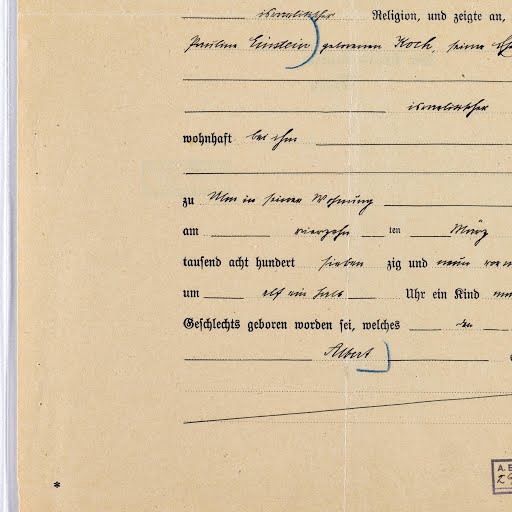 israelitischer Religion, und zeigte an,
Pauline Einstein geborenen Koch, seine
israelitischer
wohnhaft bei ihm
zu Ulm in seiner Wohnung
am vierzehn ten März
tausend acht hundert sieben zig und neun
um elf ein halb Uhr ein Kind
Geschlechts geboren worden sei, welches den
Albert
*